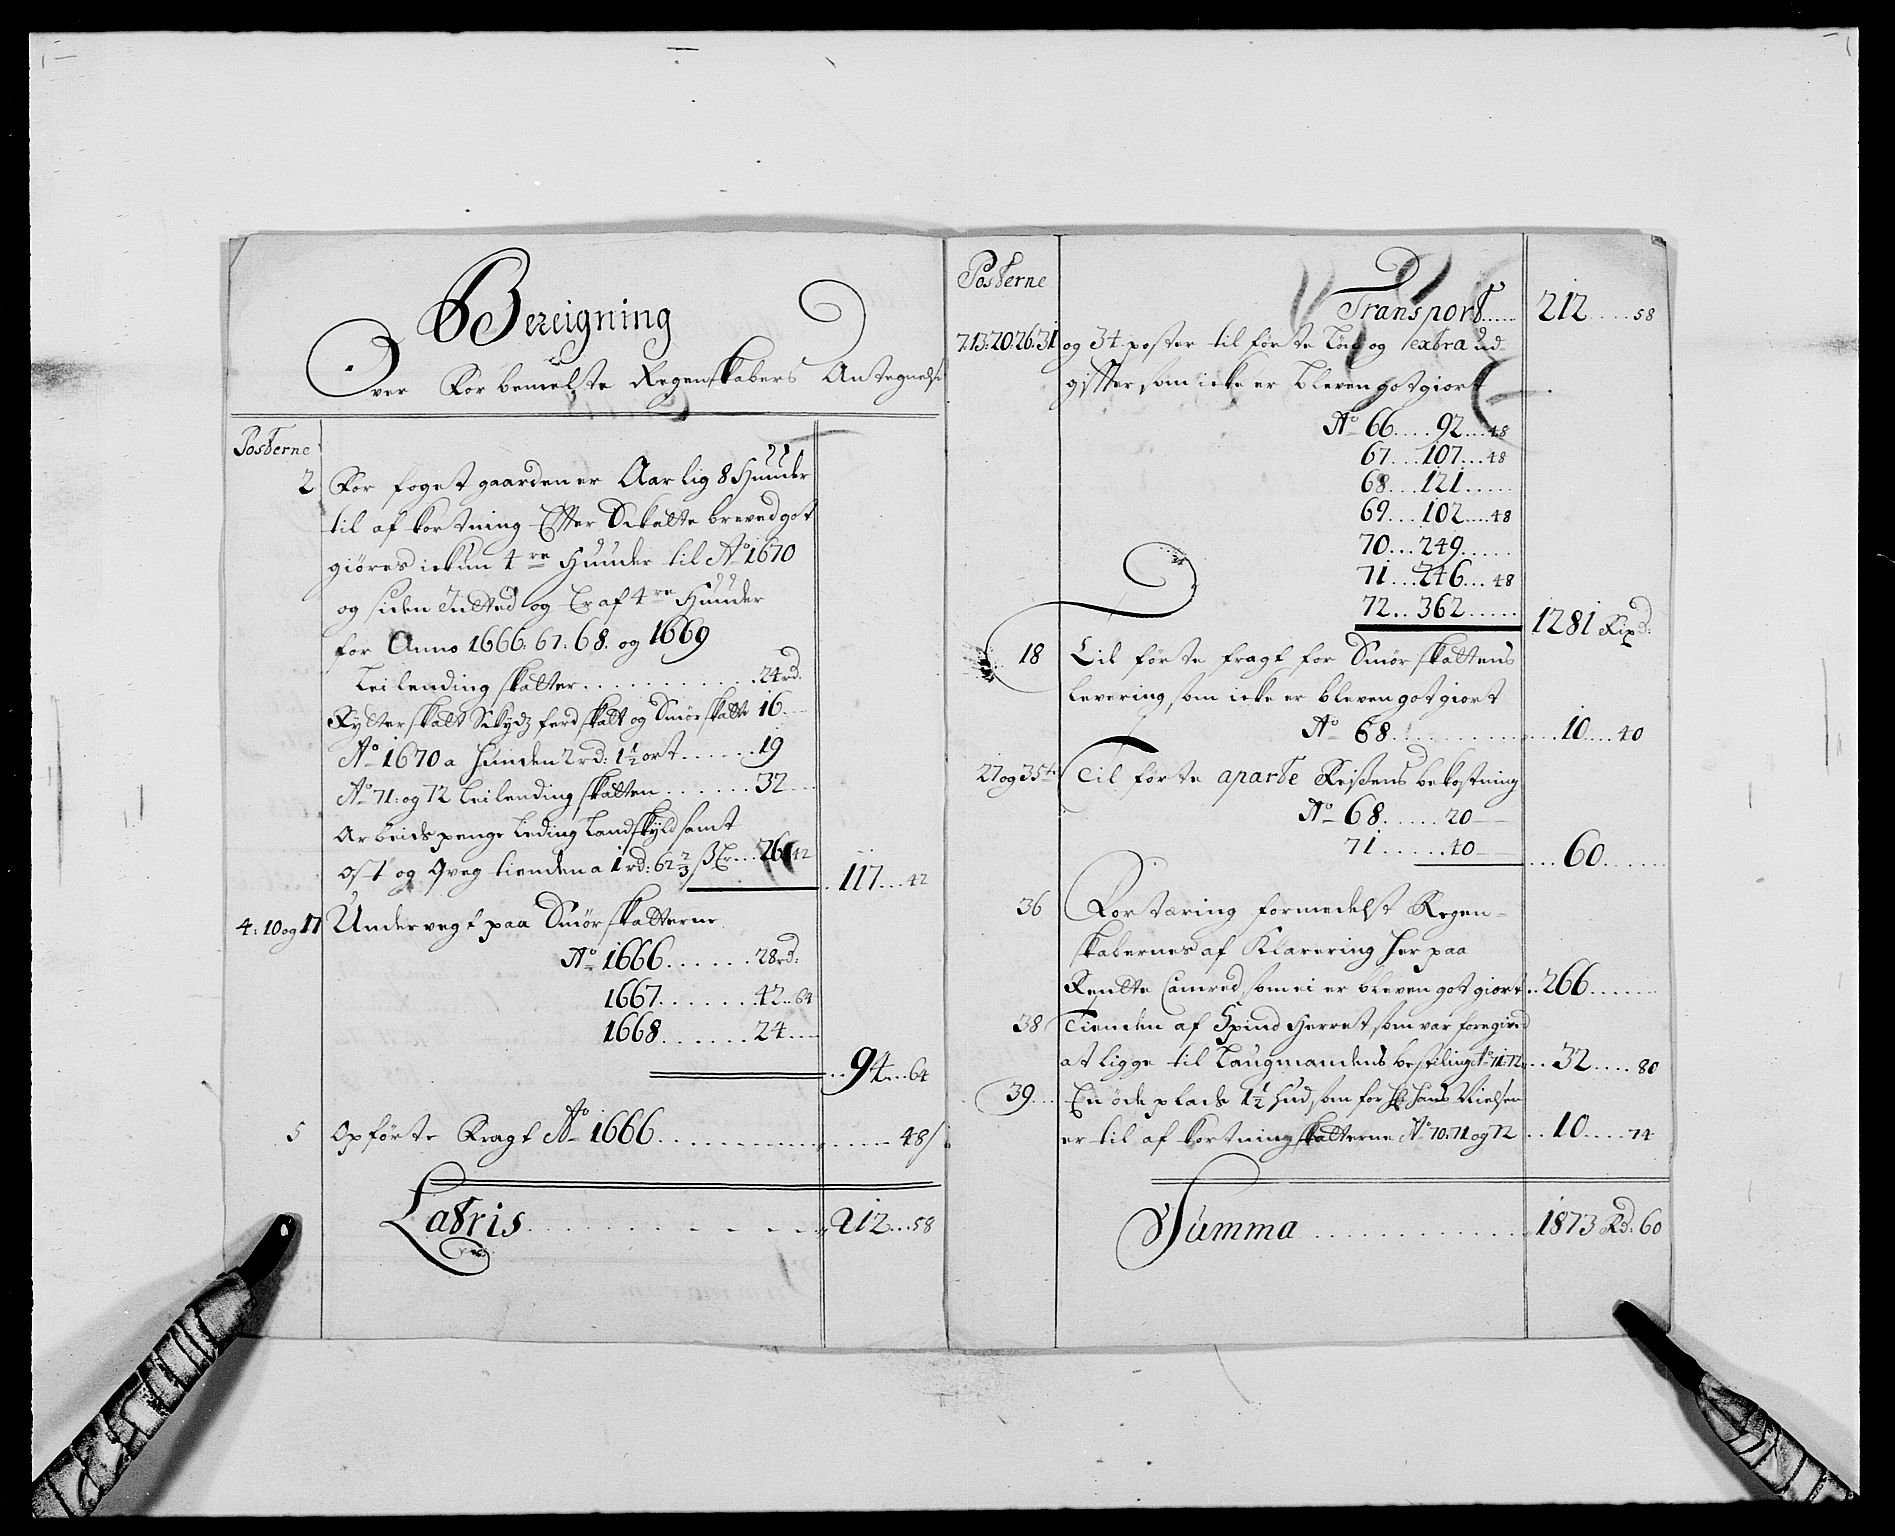 Bereigning
Over Forbemelste Regenskabers Antegnelse
Posterne
2 For fogetgaarden er Aarlig 8 Huuder
til afkortning Efter Skattebreved got
giøres ickun 4re Huuder til Ao 1670
og siden Inted og Er af 4re Huuder
for Anno 1666. 67. 68. og 1669
Leilending skatter ............ 24 rd.
Rytterskatt Skydzferdskatt og Smørskatte 16
Ao 1670 a Huuden 2 rd: 1½ ort ...... 19
Ao 71. og 72 Leilending skatten ....... 32
Arbeidspenge Leding Landskyld samt
ost og Qveg tienden a 1 rd: 62 2/3 ß Er... 26 42 .. 117 ... 42
4: 10 og 17 Undervegt paa Smørskatterne
Ao 1666 ...... 28 rd:
1667 ....... 42 .. 64
1668 ....... 24
.. 94 ... 64
5 Opførte Fragt Ao 1666 .................. 48/
Latris ............ 212 ... 58
Posterne
Transport ..... 212 ..... 58
7. 13. 20. 26. 31 og 34 poster til førte og extra ud-
gifter som icke er bleven gotgiort
Ao 66 .... 92 ... 48
67 ... 107 ... 48
68 ... 121 .....
69 ... 102 .... 48
70 ... 249 ......
71 ... 246 ... 48
72 .. 362 ...... 1281 Rixd:
18 Til førte fragt for Smørskattens
levering, som icke er bleven gotgiort
Ao 68 ............ 10 .... 40
27 og 35te Til førte aparte Reisens bekostning
Ao 68 ...... 20
71 ...... 40 .... 60 .......
36 Fortæring formedelst Regen-
skabernes afKlarering her paa
Rendte Camred, som ei er bleven gotgiort .. 266 ......
38 Tienden af Spind Herret som var foregived
at ligge til Laugmandens bestilling Ao 71. 72 .. 32 ..... 80
39 En øde plads 1½ Hud som for Hr Hans Nielsen
er til afkortning skatterne Ao 70. 71 og 72 .. 10 ..... 74
Summa ............ 1873 Rd. 60